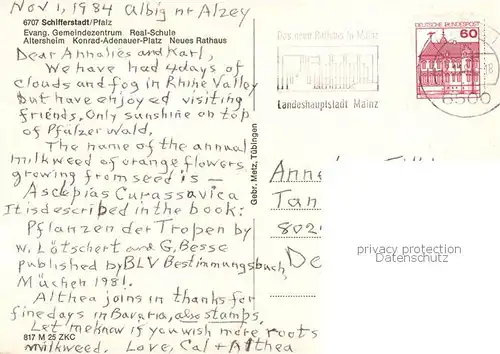 Nov 1, 1984 Albig nr Alzey
6707 Schifferstadt/Pfalz
Evang. Gemeindezentrum Real-Schule
Altersheim Konrad-Adenauer-Platz Neues Rathaus
Dear Annalies and Karl,
We have had 4 days of
clouds and fog in Rhine Valley
but have enjoyed visiting
friends. Only sunshine on top
of Pfälzer Wald.
The name of the annual
milkweed of orange flowers
growing from seed is —
Asclepias Curassavica
It is described in the book:
Pflanzen der Tropen by
W. Lötschert and G. Besse
published by BLV Bestimmungsbuch,
Müchen 1981.
Althea joins in thanks for
fine days in Bavaria, also stamps.
Let me know if you wish more roots
milkweed. Love, Cal + Althea
817 M 25 ZKC
Gebr. Metz, Tübingen
Das neue Rathaus in Mainz
Landeshauptstadt Mainz
DEUTSCHE BUNDESPOST
60
6500
Anne
Tan
802
De
privacy protection
AnsichtskartenCenter